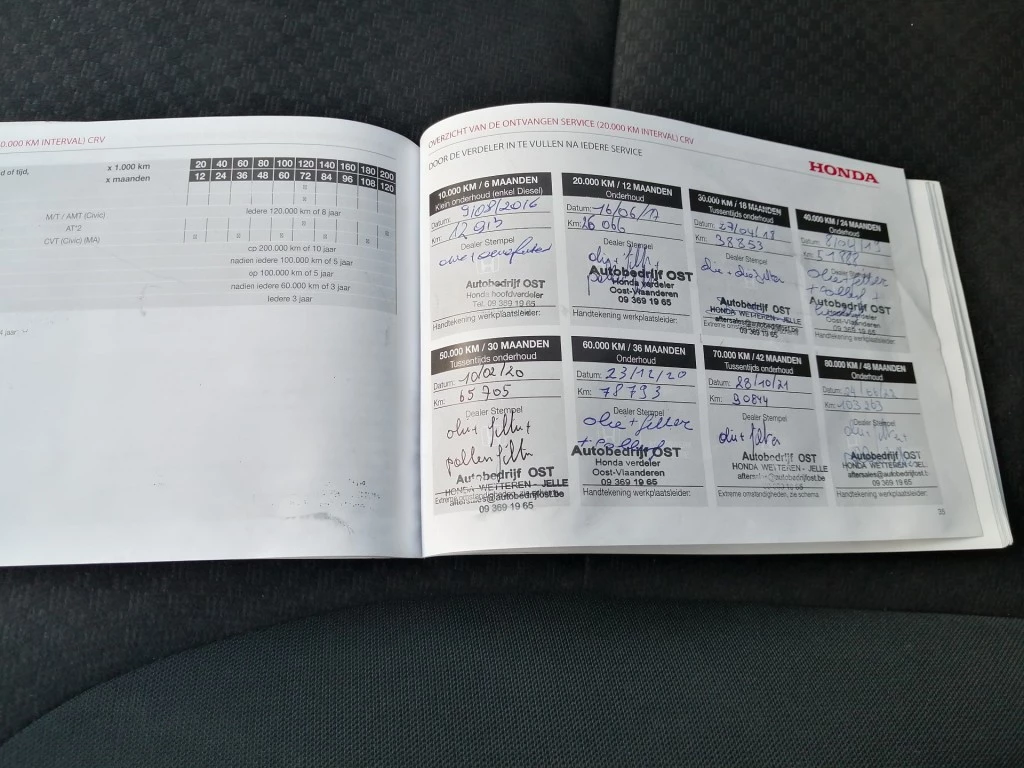 0.000 KM INTERVAL) CRV
d of tijd,
x 1.000 km
20 40 60 80 100 120 140 160 180 200
x maanden
12 24 36 48 60 72 84 96 108 120
M/T / AMT (Civic)
Iedere 120.000 km of 8 jaar
AT*2
CVT (Civic) (MA)
op 200.000 km of 10 jaar
nadien iedere 100.000 km of 5 jaar
op 100.000 km of 5 jaar
nadien iedere 60.000 km of 3 jaar
Iedere 3 jaar
4 jaar
OVERZICHT VAN DE ONTVANGEN SERVICE (20.000 KM INTERVAL) CRV
DOOR DE VERDELER IN TE VULLEN NA IEDERE SERVICE
HONDA
10.000 KM / 6 MAANDEN
Klein onderhoud (enkel Diesel)
Datum: 9/08/2016
Km: 12 913
Dealer Stempel
Autobedrijf OST
Honda hoofdverdeler
Tel. 09 369 19 65
Handtekening werkplaatsleider:
20.000 KM / 12 MAANDEN
Onderhoud
Datum: 16/06/17
Km: 26 066
Dealer Stempel
olie + filter
Autobedrijf OST
Honda verdeler
Oost-Vlaanderen
09 369 19 65
Handtekening werkplaatsleider:
30.000 KM / 18 MAANDEN
Tussentijds onderhoud
Datum: 27/04/18
Km: 38853
Dealer Stempel
olie + oliefilter
Autobedrijf OST
HONDA WETTEREN - JELLE
aftersales@autobedrijfost.be
09 369 19 65
40.000 KM / 24 MAANDEN
Onderhoud
Datum: 8/04/19
Km: 51888
Dealer Stempel
olie + filter
+ pollen +
Autobedrijf OST
Honda verdeler
Oost-Vlaanderen
09 369 19 65
Handtekening werkplaatsleider:
50.000 KM / 30 MAANDEN
Tussentijds onderhoud
Datum: 10/02/20
Km: 65 705
Dealer Stempel
olie + filter +
pollenfilter
Autobedrijf OST
HONDA WETTEREN - JELLE
aftersales@autobedrijfost.be
09 369 19 65
60.000 KM / 36 MAANDEN
Onderhoud
Datum: 23/12/20
Km: 78793
Dealer Stempel
olie + filter
+ pollen
Autobedrijf OST
Honda verdeler
Oost-Vlaanderen
09 369 19 65
Handtekening werkplaatsleider:
70.000 KM / 42 MAANDEN
Tussentijds onderhoud
Datum: 28/10/21
Km: 90844
Dealer Stempel
olie + filter
Autobedrijf OST
HONDA WETTEREN - JELLE
aftersales@autobedrijfost.be
09 369 19 65
Extreme omstandigheden, zie schema
80.000 KM / 48 MAANDEN
Onderhoud
Datum:
Km: 103263
Dealer Stempel
olie + filter +
Autobedrijf OST
HONDA WETTEREN - JELLE
aftersales@autobedrijfost.be
09 369 19 65
Handtekening werkplaatsleider:
35